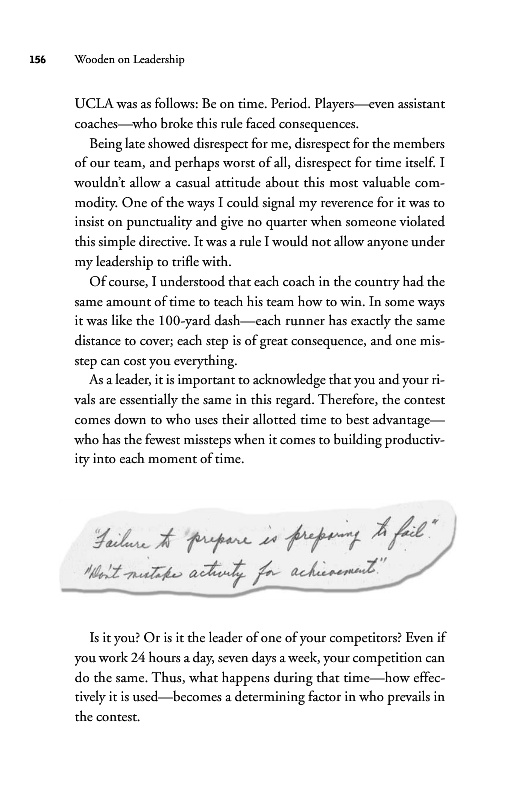 156 Wooden on Leadership
UCLA was as follows: Be on time. Period. Players—even assistant
coaches—who broke this rule faced consequences.
Being late showed disrespect for me, disrespect for the members
of our team, and perhaps worst of all, disrespect for time itself. I
wouldn't allow a casual attitude about this most valuable com-
modity. One of the ways I could signal my reverence for it was to
insist on punctuality and give no quarter when someone violated
this simple directive. It was a rule I would not allow anyone under
my leadership to trifle with.
Of course, I understood that each coach in the country had the
same amount of time to teach his team how to win. In some ways
it was like the 100-yard dash—each runner has exactly the same
distance to cover; each step is of great consequence, and one mis-
step can cost you everything.
As a leader, it is important to acknowledge that you and your ri-
vals are essentially the same in this regard. Therefore, the contest
comes down to who uses their allotted time to best advantage—
who has the fewest missteps when it comes to building productiv-
ity into each moment of time.
"Failure to prepare is preparing to fail."
"Don't mistake activity for achievement."
Is it you? Or is it the leader of one of your competitors? Even if
you work 24 hours a day, seven days a week, your competition can
do the same. Thus, what happens during that time—how effec-
tively it is used—becomes a determining factor in who prevails in
the contest.